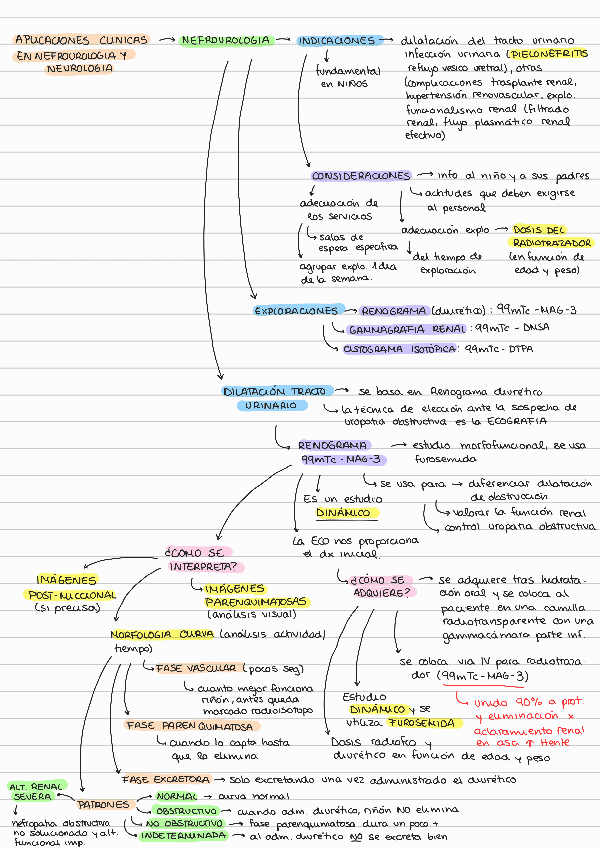 APLICACIONES CLINICAS
EN NEFROUROLOGIA Y
NEUROLOGIA
NEFROUROLOGIA
INDICACIONES
dilatación del tracto urinario
infección urinaria (PIELONEFRITIS
reflujo vesico uretral), otras
(complicaciones trasplante renal,
hipertensión renovascular, explo.
funcionalismo renal (filtrado
renal, flujo plasmático renal
efectivo)
fundamental
en NIÑOS
CONSIDERACIONES
info al niño y a sus padres
actitudes que deben exigirse
al personal
adecuación de
los servicios
salas de
espera especifica
agrupar explo. 1 dia
de la semana.
adecuación explo
DOSIS DEL
RADIOTRAZADOR
(en función de
edad y peso)
del tiempo de
exploración
EXPLORACIONES
RENOGRAMA (diurético) : 99mTc-MAG-3
GAMMAGRAFIA RENAL : 99mTc - DMSA
CISTOGRAMA ISOTÓPICA : 99mTc - DTPA
DILATACIÓN TRACTO
URINARIO
se basa en Renograma diurético
la técnica de elección ante la sospecha de
uropatia obstructiva es la ECOGRAFIA
RENOGRAMA
99mTc - MAG-3
estudio morfofuncional, se usa
furosemida
se usa para
diferenciar dilatación
de obstrucción
valorar la función renal
control uropatia obstructiva
Es un estudio
DINÁMICO
La ECO nos proporciona
el dx inicial.
¿CÓMO SE
INTERPRETA?
IMÁGENES
POST-MICCIONAL
(si precisa)
IMÁGENES
PARENQUIMATOSAS
(análisis visual)
MORFOLOGIA CURVA (análisis actividad/
tiempo)
FASE VASCULAR (pocos seg)
cuanto mejor funciona
riñón, antes queda
marcado radioisótopo
FASE PARENQUIMATOSA
cuando lo capta hasta
que lo elimina
FASE EXCRETORA
solo excretando una vez administrado el diurético
¿CÓMO SE
ADQUIERE?
se adquiere tras hidrata-
ción oral y se coloca al
paciente en una camilla
radiotransparente con una
gammacámara parte inf.
se coloca via IV para radiotraza
dor (99mTc-MAG-3)
unido 90% a prot.
y eliminación x
aclaramiento renal
en asa ↑ Henle
Estudio
DINÁMICO y se
utiliza FUROSEMIDA
Dosis radiofco y
diurético en función de edad y peso
PATRONES
ALT. RENAL
SEVERA
nefropatia obstructiva
no solucionado y alt.
funcional imp.
NORMAL
curva normal
OBSTRUCTIVO
cuando adm. diurético, riñón NO elimina
NO OBSTRUCTIVO
fase parenquimatosa dura un poco +
INDETERMINADA
al adm. diurético NO se excreta bien